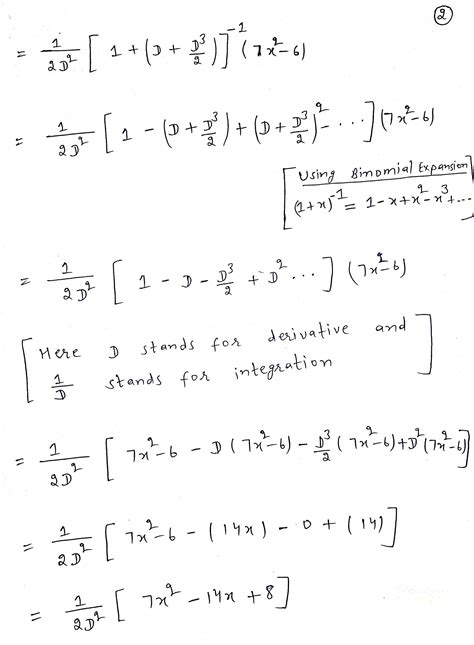 2
= 1/2D² [ 1 + (D + D³/2) ]⁻¹ (7x²-6)
= 1/2D² [ 1 - (D + D³/2) + (D + D³/2)² - ... ] (7x²-6)
[ Using Binomial Expansion
(1+x)⁻¹ = 1-x+x²-x³+... ]
= 1/2D² [ 1 - D - D³/2 + D² ... ] (7x²-6)
[ Here D stands for derivative and
1/D stands for integration ]
= 1/2D² [ 7x²-6 - D(7x²-6) - D³/2 (7x²-6) + D²(7x²-6) ]
= 1/2D² [ 7x²-6 - (14x) - 0 + (14) ]
= 1/2D² [ 7x² - 14x + 8 ]